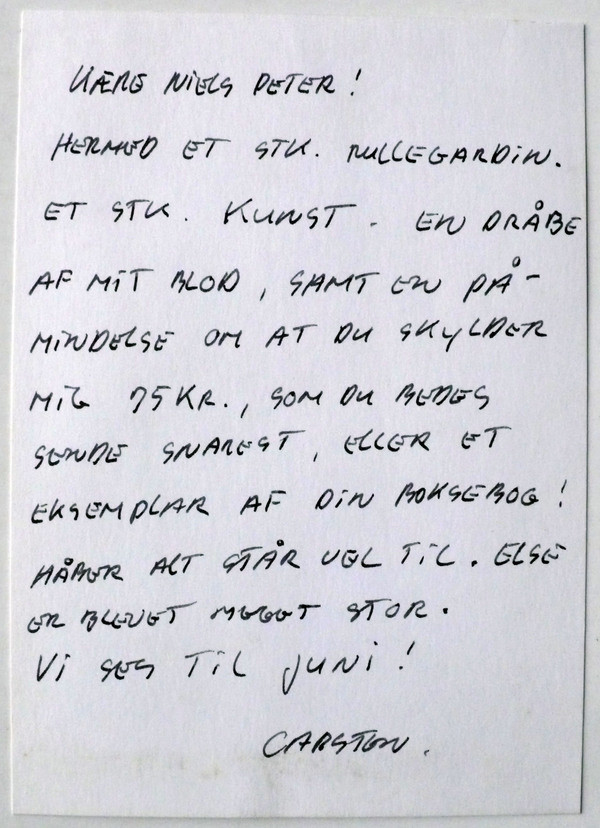 KÆRE NIELS PETER!
HERMED ET STK. RULLEGARDIN.
ET STK. KUNST - EN DRÅBE
AF MIT BLOD, SAMT EN PÅ-
MINDELSE OM AT DU SKYLDER
MIG 75 KR., SOM DU BEDES
SENDE SNAREST, ELLER ET
EKSEMPLAR AF DIN BOKSEBOG!
HÅBER ALT STÅR VEL TIL. ELSE
ER BLEVET MEGET STOR.
VI SES TIL JUNI!
CARSTEN.